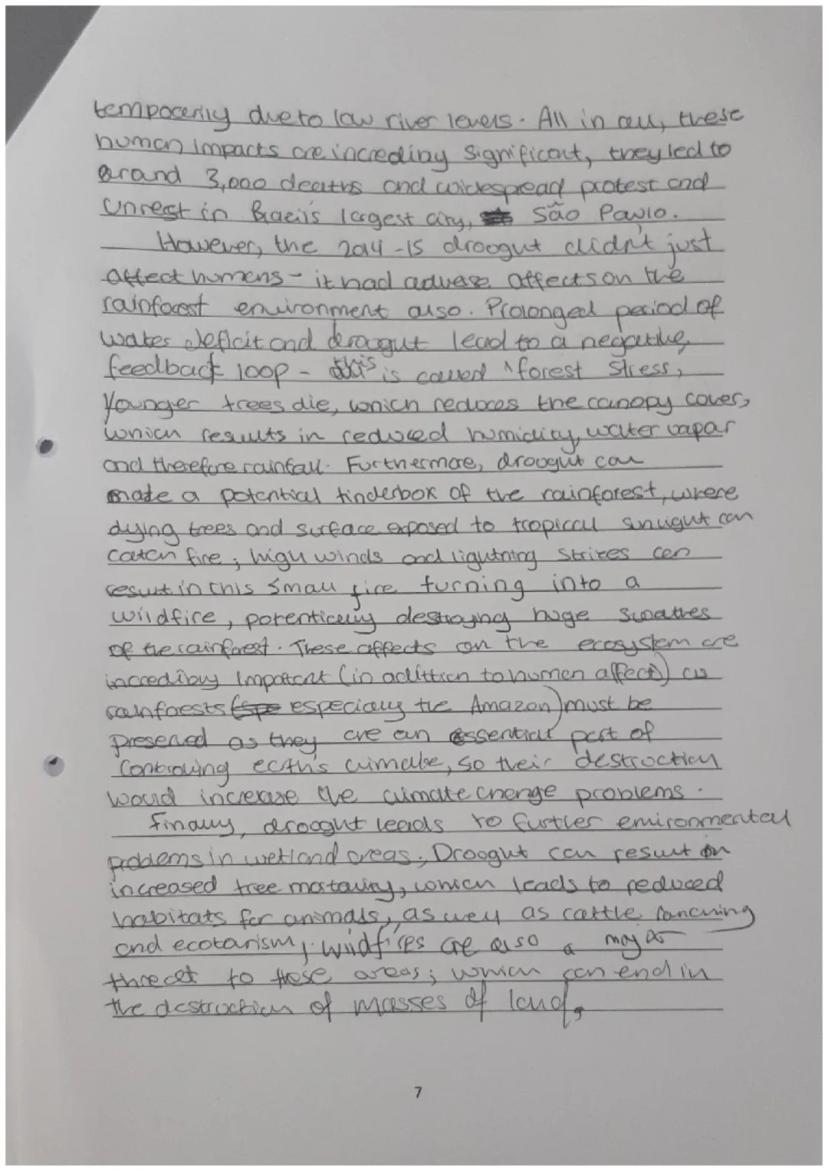 temporarily due to low river levels. All in all, these
human impacts are incredibly significant, they led to
around 3,000 deaths and widespread protest and
unrest in Brazil's largest city, São Paulo.
However, the 2014-15 drought didn't just
affect humans - it had adverse affects on the
rainforest environment also. Prolonged period of
water deficit and drought lead to a negative
feedback loop - this is called 'forest stress,
Younger trees die, which reduces the canopy cover,
which results in reduced humidity, water vapar
and therefore rainfall. Furthermore, drought can
made a potential tinderbox of the rainforest, where
dying trees and surface exposed to tropical sunlight can
catch fire; high winds and lightning strikes can
result in this small fire turning into a
wildfire, potentially destroying huge swathes
of the rainforest. These affects on the ecosystem are
incredibly important (in addition to human affect) as
rainforests (especially the Amazon) must be
preserved as they are an essential part of
controlling earth's climate, so their destruction
would increase the climate change problems.
Finally, drought leads to further environmental
problems in wetland areas. Drought can result in
increased tree mortality, which leads to reduced
habitats for animals, as well as cattle ranching
and ecotarism, wildfires are also a major
threat to these areas; which can end in
the destruction of masses of land.
7